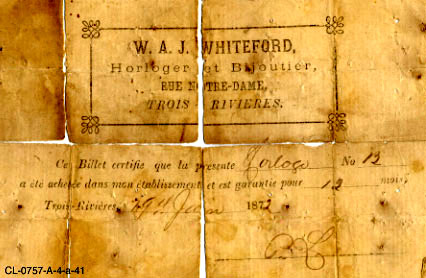 W. A. J. WHITEFORD,
Horloger et Bijoutier,
RUE NOTRE-DAME,
TROIS RIVIERES.
Ce Billet certifie que la présente Horloge No 12
a été achetée dans mon établissement et est garantie pour 12 mois,
Trois-Rivières, 29 187
CL-0757-A-4-a-41